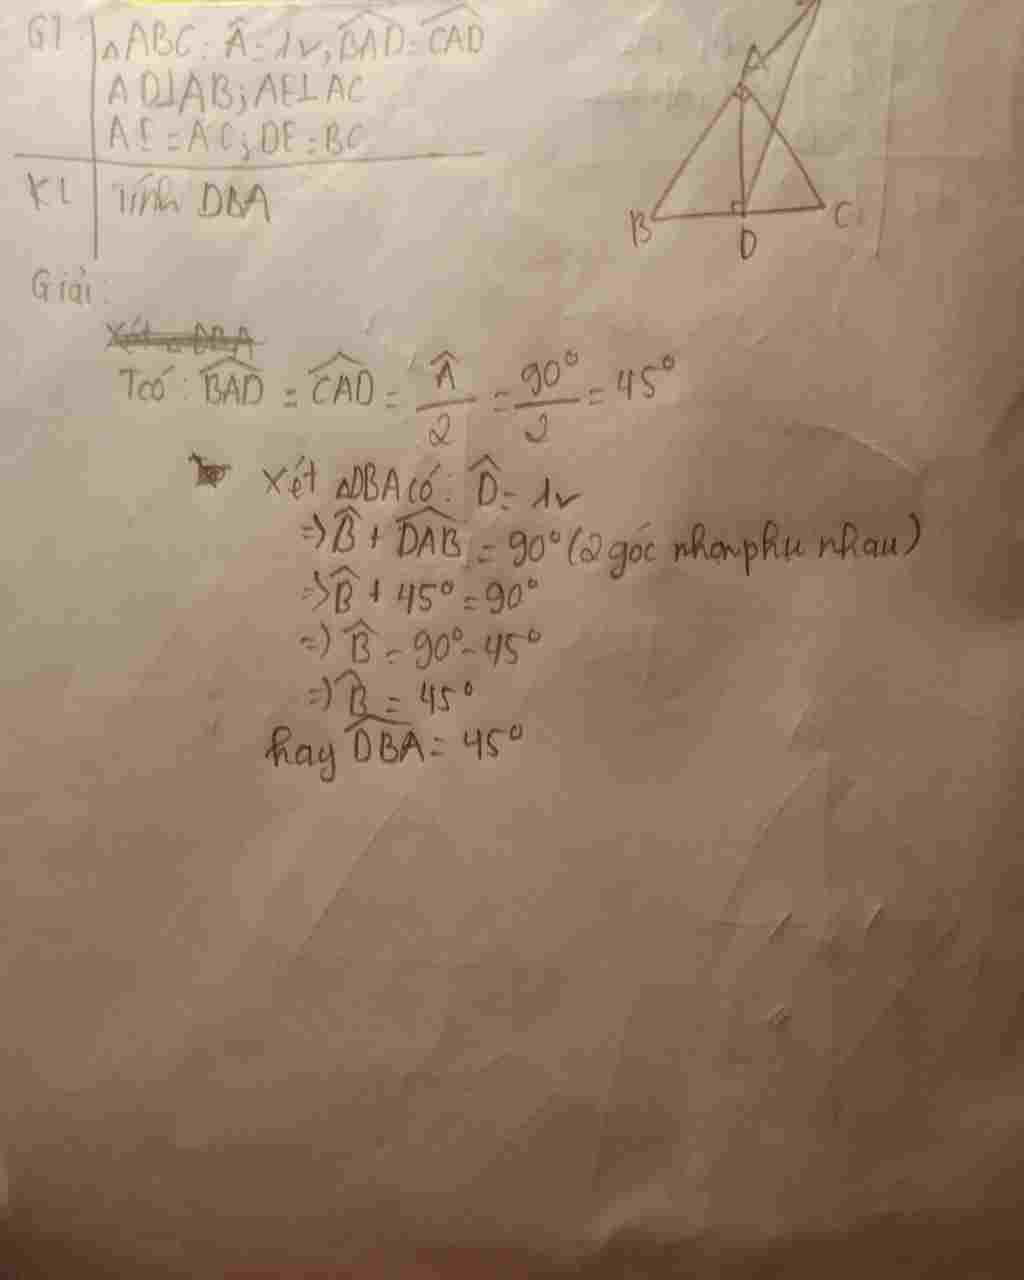 GT ΔABC: Â = 1v, BAD̂ = CAD̂
AD⊥AB; AE⊥AC
AE = AC; DE = BC
KL Tính DBA
A
B
D
C
Giải:
Xét ΔDBA
Tcó: BAD̂ = CAD̂ = Â/2 = 90°/2 = 45°
Xét ΔDBA có: D̂ = 1v
=> B̂ + DAB̂ = 90° (2 góc nhọn phụ nhau)
=> B̂ + 45° = 90°
=> B̂ = 90° - 45°
=> B̂ = 45°
hay DBÂ = 45°